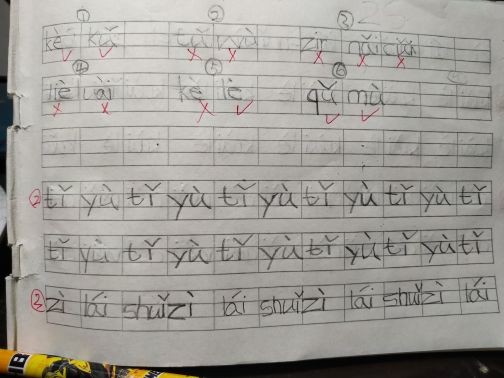 ① ② ③
kè kǎ zir
④ ⑤ ⑥
kè lè qǔ mù
② tǐ yù tǐ yù tǐ yù tǐ yù tǐ yù tǐ
tǐ yù tǐ yù tǐ yù tǐ yù tǐ yù tǐ
③ zì lái shuǐ zì lái shuǐ zì lái shuǐ zì lái